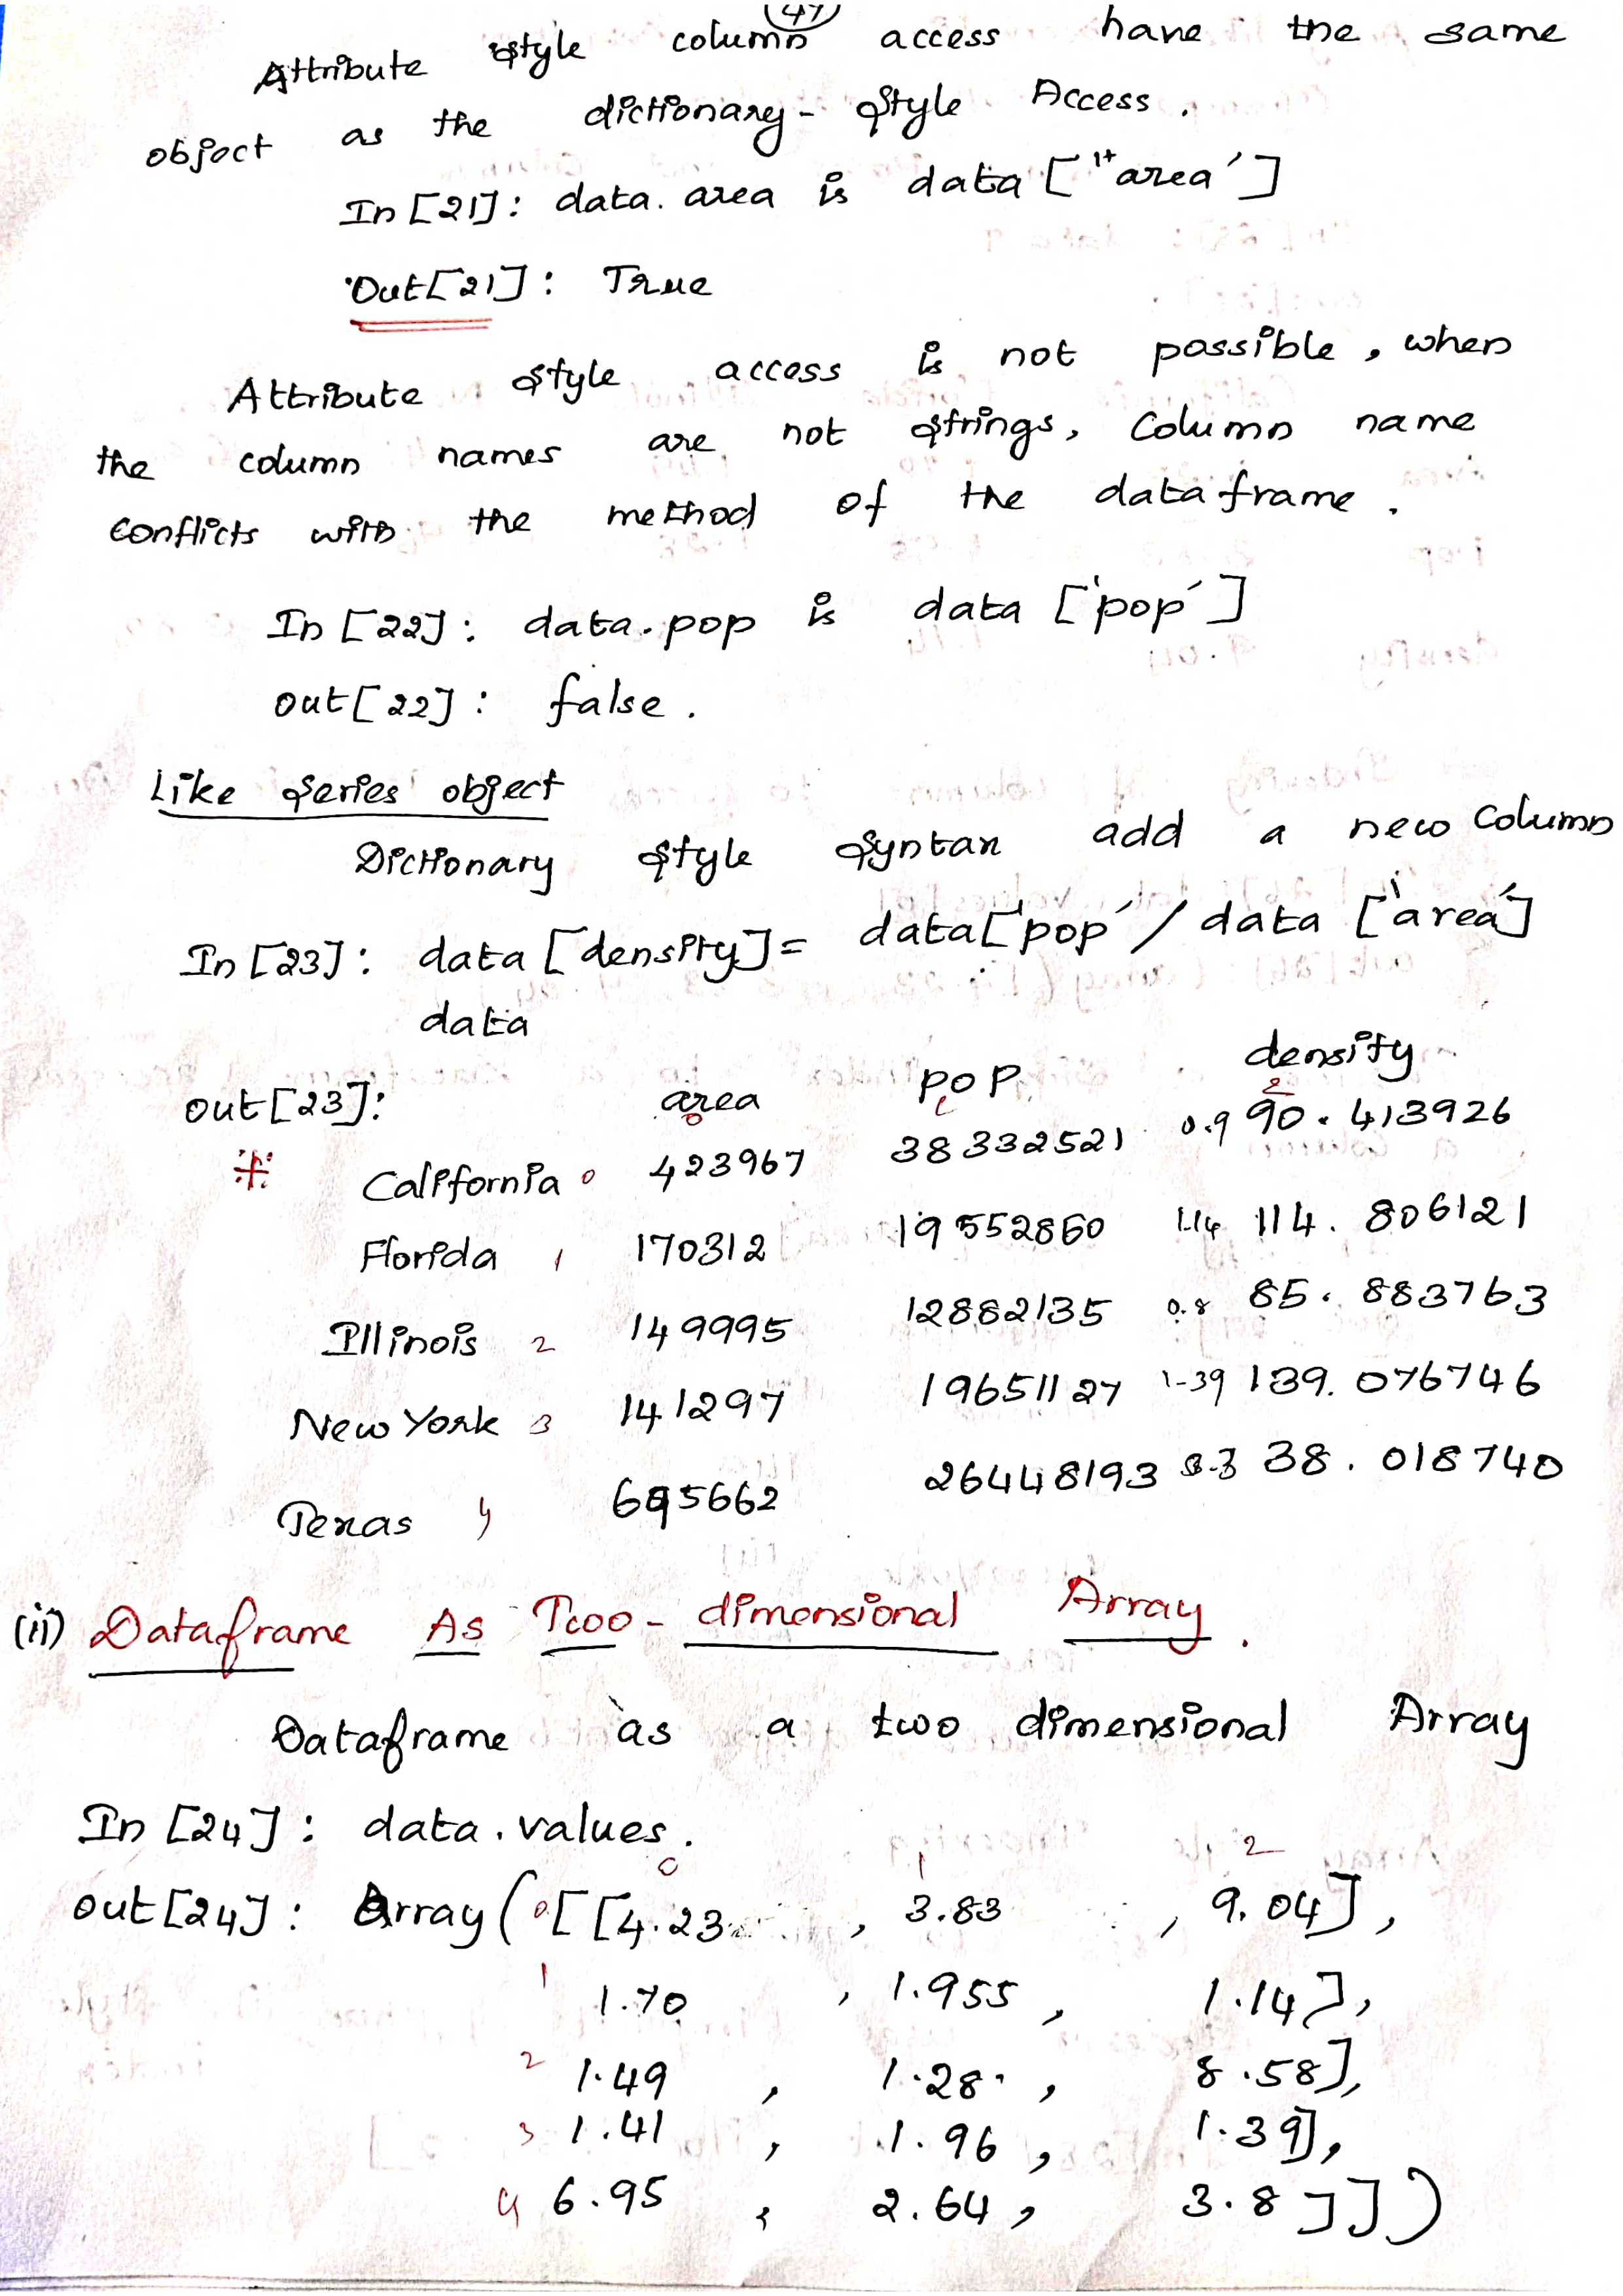 47
Attribute style column access have the same
object as the dictionary-style Access.
In [21]: data.area is data ["area']
Out[21]: True
Attribute style access is not possible, when
the column names are not strings, Column name
conflicts with the method of the dataframe.
In [22]: data.pop is data ['pop']
out[22]: false.
Like series object
Dictionary style syntax add a new column
In [23]: data [density]= data['pop' / data ['area']
data
out[23]: area pop density
0 1 2
California 0 423967 38332521 0.9 90.413926
Florida 1 170312 19552860 1.14 114.806121
Illinois 2 149995 12882135 0.8 85.883763
New York 3 141297 19651127 1-39 139.076746
Texas 4 695662 26448193 3.3 38.018740
(ii) Dataframe As Two-dimensional Array.
Dataframe as a two dimensional Array
In [24]: data.values.
0 1 2
out[24]: Array( 0 [[4.23 , 3.83 , 9.04],
1 1.70 , 1.955 , 1.14],
2 1.49 , 1.28. , 8.58],
3 1.41 , 1.96 , 1.39],
4 6.95 , 2.64, 3.8]])